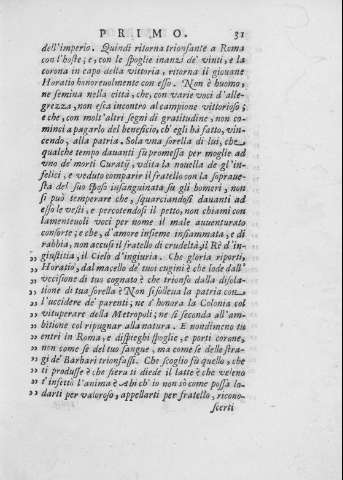 PRIMO. 31
dell'imperio. Quindi ritorna trionfante a Roma
con l'hoste; e, con le spoglie inanzi de' vinti, e la
corona in capo della vittoria, ritorna il giouane
Horatio honoreuolmente con esso. Non è huomo,
ne femina nella città, che, con varie voci d'alle-
grezza, non esca incontro al campione vittorioso;
e che, con molt'altri segni di gratitudine, non co-
minci a pagarlo del beneficio, ch'egli hà fatto, vin-
cendo, alla patria. Sola vna sorella di lui, che
qualche tempo dauanti fù promessa per moglie ad
vno de' morti Curatij, vdita la nouella de gl'in-
felici, e veduto comparir il fratello con la soprauе-
sta del suo sposo insanguinata sù gli homeri, non
si può temperare che, squarciandosi dauanti ad
esso le vesti, e percotendosi il petto, non chiami con
lamenteuoli voci per nome il male auuenturato
consorte; e che, d'amore insieme infiammata, e di
rabbia, non accusi il fratello di crudeltà, il Rè d'in-
giustitia, il Cielo d'ingiuria. Che gloria riporti,
Horatio, dal macello de' tuoi cugini è che lode dall'
" vccisione di tuo cognato è che trionfo dalla disola-
" tione di tua sorella è Non si solleua la patria con
" l'uccidere de' parenti; ne s'honora la Colonia col
" vituperare della Metropoli; ne si seconda all'am-
" bitione col ripugnar alla natura. E nondimeno tu
" entri in Roma, e dispieghi spoglie, e porti corone,
" non come se del tuo sangue, ma come se delle stra-
" gi de' Barbari trionfassi. Che scoglio fù quello, che
" ti produsse è che fiera ti diede il latte è che veleno
" t'infettò l'anima è Ahi ch'io non sò come possa lo-
" darti per valoroso, appellarti per fratello, ricono-
scerti